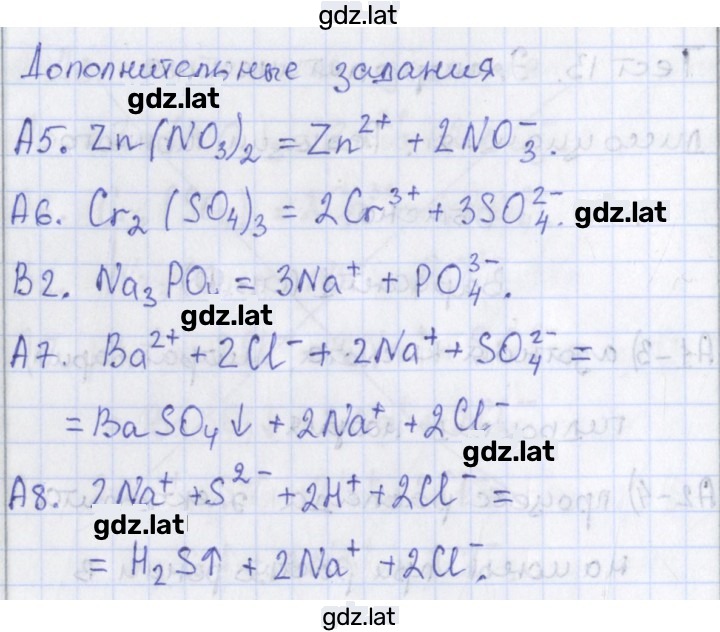 gdz.lat
Дополнительные задания
gdz.lat
А5. Zn(NO₃)₂ = Zn²⁺ + 2NO₃⁻.
А6. Cr₂(SO₄)₃ = 2Cr³⁺ + 3SO₄²⁻. gdz.lat
В2. Na₃PO₄ = 3Na⁺ + PO₄³⁻.
gdz.lat
А7. Ba²⁺ + 2Cl⁻ + 2Na⁺ + SO₄²⁻ =
= BaSO₄↓ + 2Na⁺ + 2Cl⁻.
gdz.lat
А8. 2Na⁺ + S²⁻ + 2H⁺ + 2Cl⁻ =
gdz.lat
= H₂S↑ + 2Na⁺ + 2Cl⁻.
gdz.lat